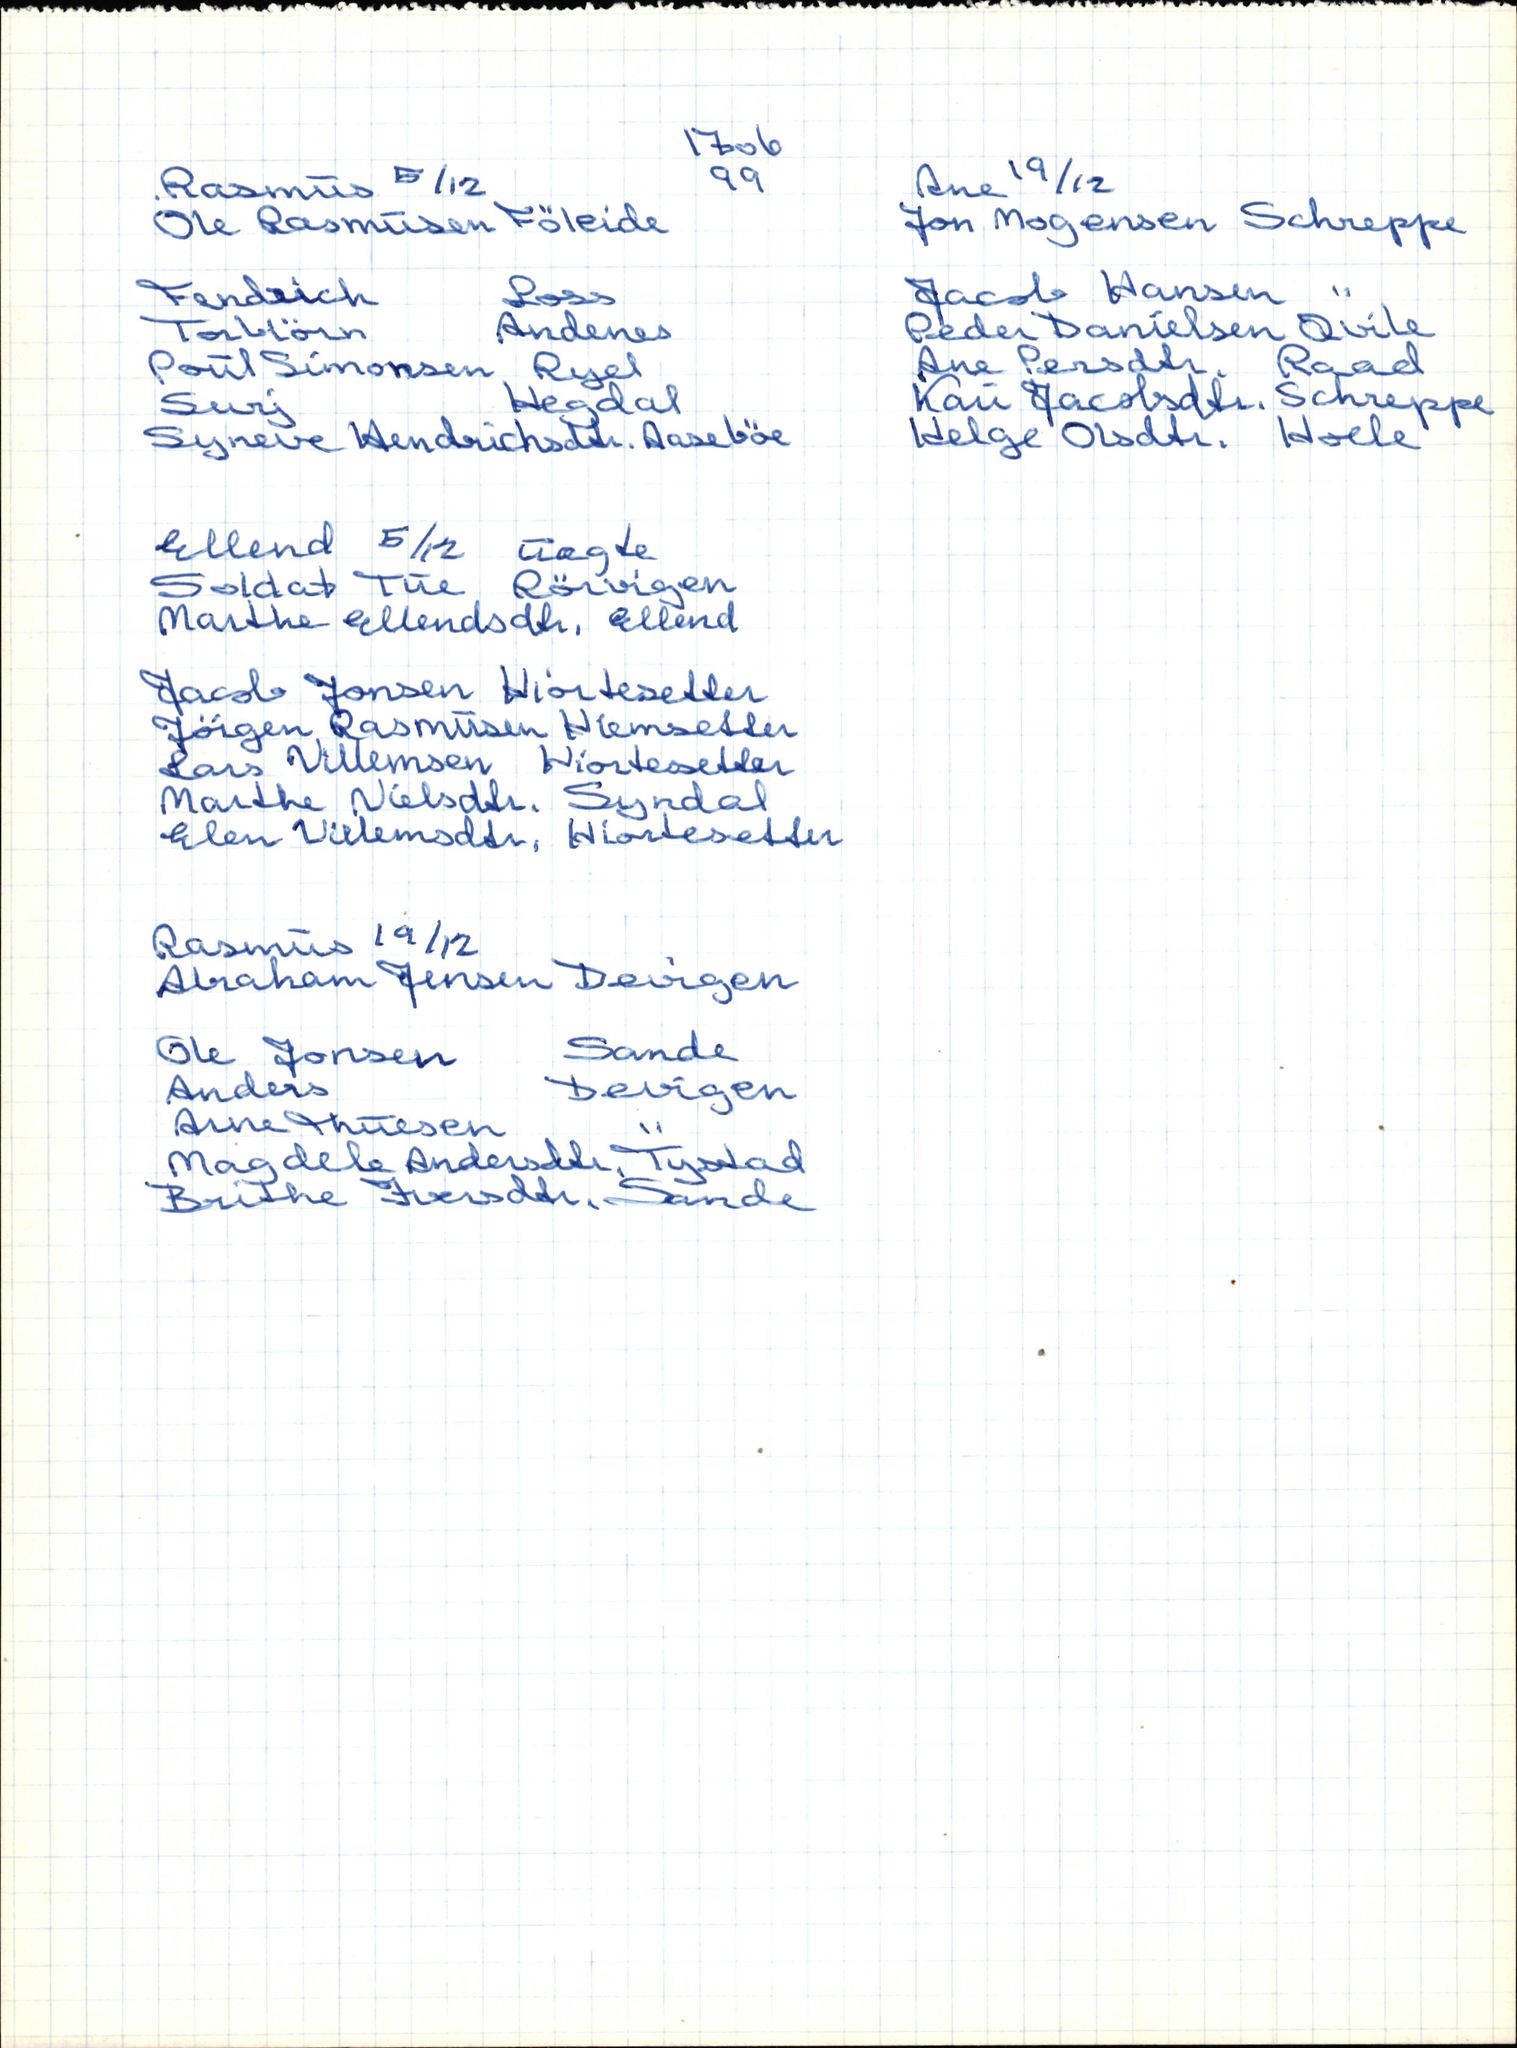 1706
99
Rasmus 5/12
Ole Rasmusen Föleide
Fendrich Loss
Torbiörn Andenes
Poul Simonsen Ryel
Surj Hegdal
Syneve Hendrichsdtr. Aaseböe
Ellend 5/12 uegte
Soldat Tue Rörvigen
Marthe Ellendsdtr. Ellend
Jacob Jonsen Hiortesetter
Jörgen Rasmusen Hiemsetter
Lars Villemsen Hiortesetter
Marthe Nielsdtr. Syndal
Elen Villemsdtr. Hiortesetter
Rasmus 19/12
Abraham Jensen Devigen
Ole Jonsen Sande
Anders Devigen
Arne Thuesen "
Magdele Andersdtr. Tystad
Brithe Iversdtr. Sande
Ane 19/12
Jon Mogensen Schreppe
Jacob Hansen "
Peder Danielsen Qvile
Ane Persdtr. Raad
Kari Jacobsdtr. Schreppe
Helge Olsdtr. Holle